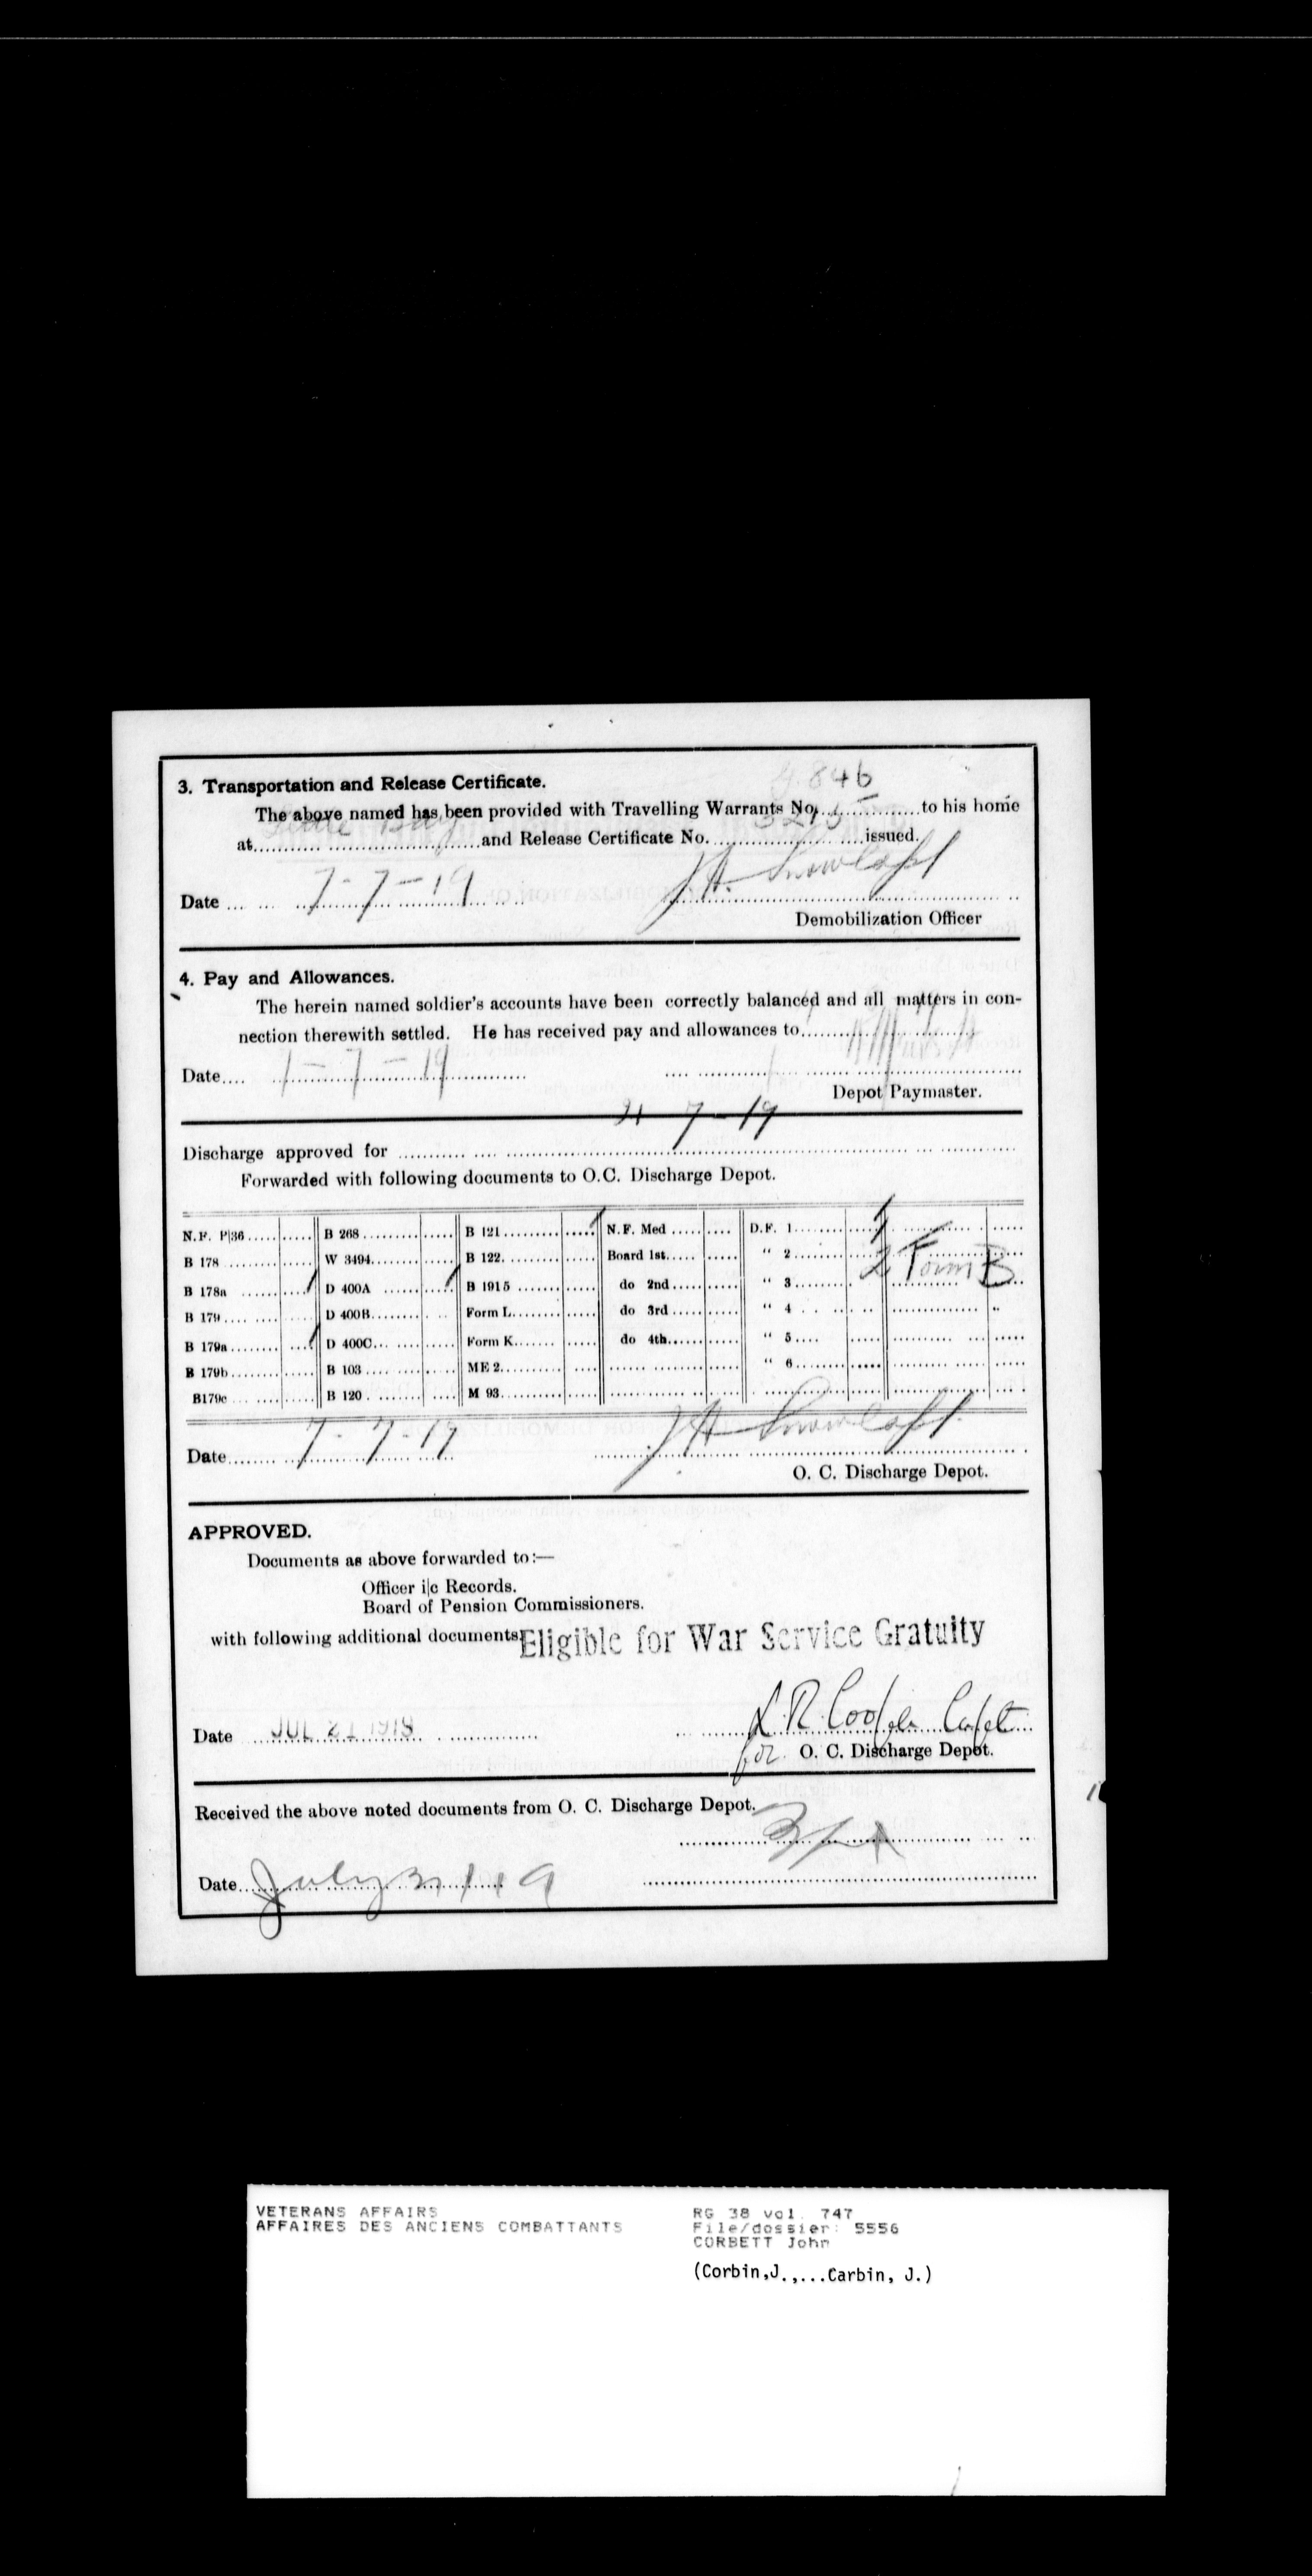 3. Transportation and Release Certificate.
4846
The above named has been provided with Travelling Warrants No. to his home
at Little Bay and Release Certificate No. issued.
Date 7-7-19
Demobilization Officer
4. Pay and Allowances.
The herein named soldier's accounts have been correctly balanced and all matters in con-
nection therewith settled. He has received pay and allowances to
Date
Depot Paymaster.
21-7-19
Discharge approved for
Forwarded with following documents to O.C. Discharge Depot.
N.F. P|36 B 268 B 121 / N.F. Med D.F. 1 1
B 178 W 3494 B 122 Board 1st " 2 2 Form B
B 178a / D 400A / B 1915 do 2nd " 3
B 179 D 400B Form L do 3rd " 4
B 179a / D 400C Form K do 4th " 5
B 179b B 103 ME 2 " 6
B179c B 120 M 93
Date 7-7-19
O. C. Discharge Depot.
APPROVED.
Documents as above forwarded to:—
Officer i|c Records.
Board of Pension Commissioners.
with following additional documents Eligible for War Service Gratuity
Date JUL 21 1919 Capt
for O. C. Discharge Depot.
Received the above noted documents from O. C. Discharge Depot.
Date July 31/19
VETERANS AFFAIRS
AFFAIRES DES ANCIENS COMBATTANTS
RG 38 vol. 747
File/dossier: 5556
CORBETT John
(Corbin,J.,...Carbin, J.)